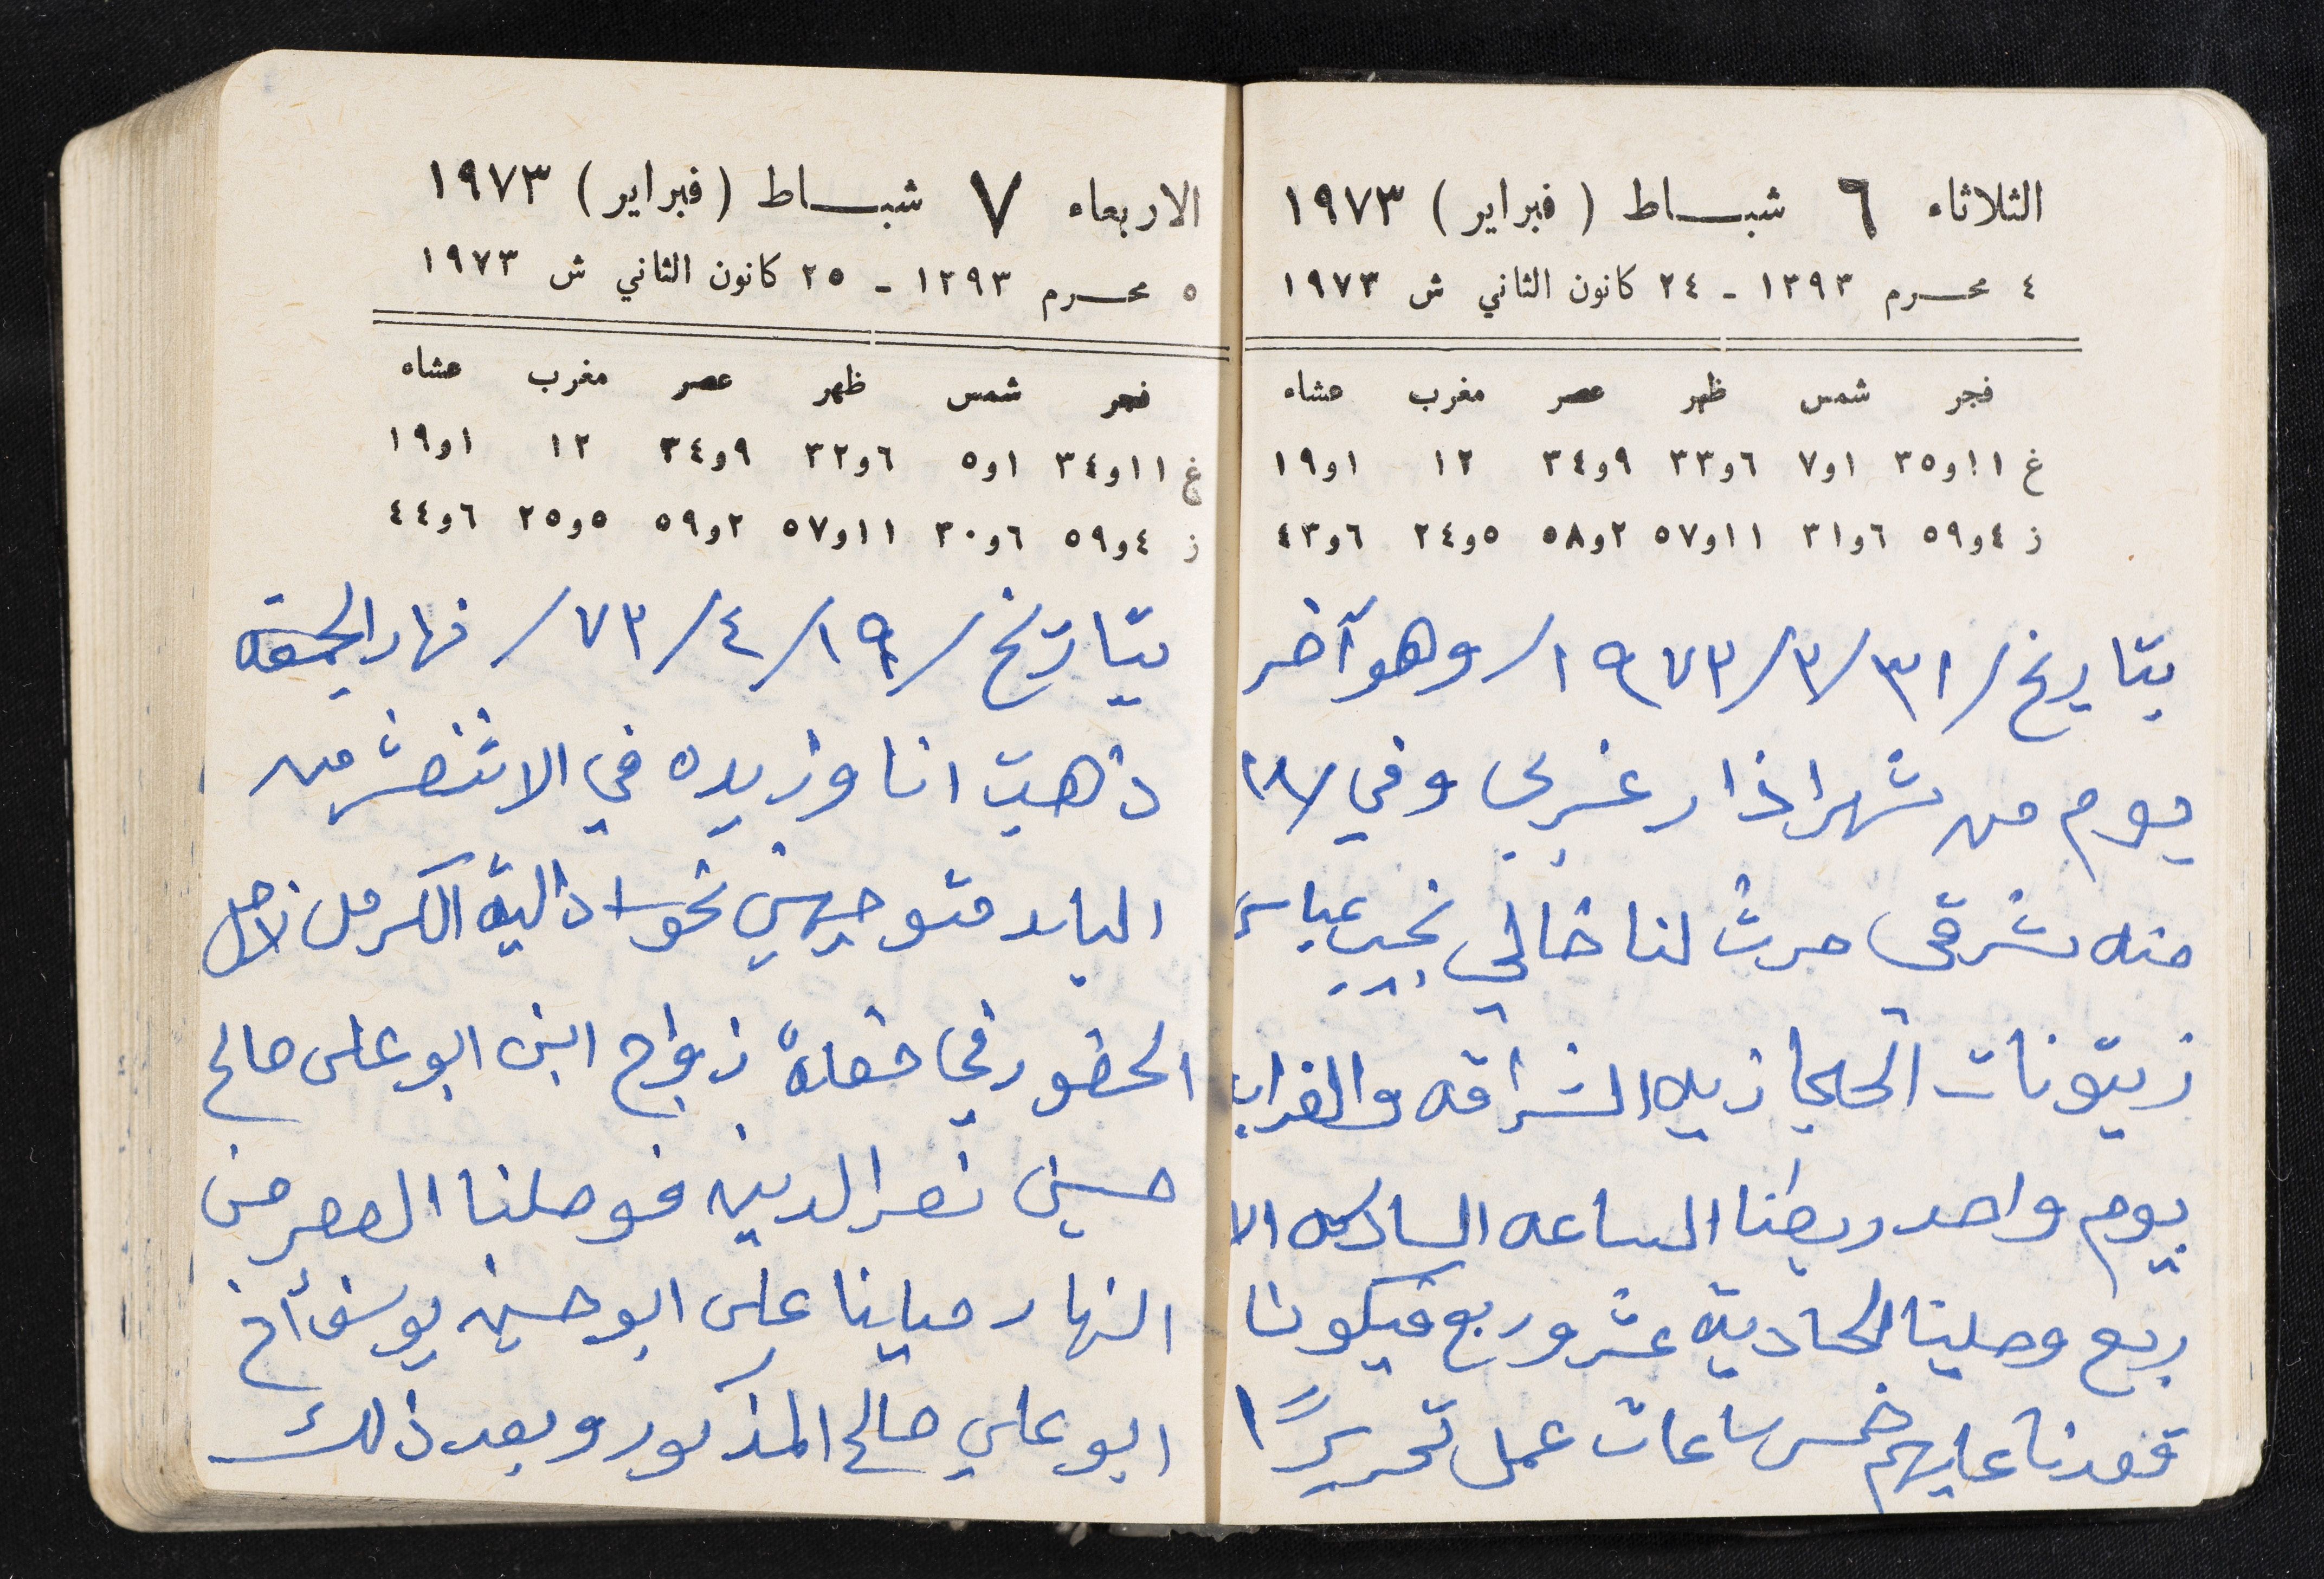 الثلاثاء ٦ شباط (فبراير) ١٩٧٣
٤ محرم ١٣٩٣ - ٢٤ كانون الثاني ش ١٩٧٣
فجر شمس ظهر عصر مغرب عشاء
غ ١١و٣٥ ١و٧ ٦و٣٣ ٩و٣٤ ١٢ ١و١٩
ز ٤و٥٩ ٦و٣١ ١١و٥٧ ٢و٥٨ ٥و٢٤ ٦و٤٣
بتاريخ /٣١/٣/١٩٧٣/ وهو آخر
يوم من شهر اذار غربى وفي /١٨
منه شرقى حرث لنا خالي نجيب عباس
زيتونات الحجازيه الشراقه والغراب
يوم واحد ربطنا الساعه السادسه الا
ربع وصلينا الحادية عشر وربع فيكونا
قعدنا عليهم خمس ساعات عمل تحريرًا
الاربعاء ٧ شباط (فبراير) ١٩٧٣
٥ محرم ١٣٩٣ - ٢٥ كانون الثاني ش ١٩٧٣
فجر شمس ظهر عصر مغرب عشاء
غ ١١و٣٤ ١و٥ ٦و٣٢ ٩و٣٤ ١٢ ١و١٩
ز ٤و٥٩ ٦و٣٠ ١١و٥٧ ٢و٥٩ ٥و٢٥ ٦و٤٤
بتاريخ /١٩/٤/٧٣/ نهار الجمعه
ذهبت انا وزيده في الاثنعشر من
البلد متوجهين نحو دالية الكرمل لاجل
الحضور في حفلة زواج ابن ابو على صالح
حسين نصرالدين فوصلنا العصر من
النهار ميلنا على ابو حسين يوسف أخ
ابو علي صالح المذكور وبعد ذلك